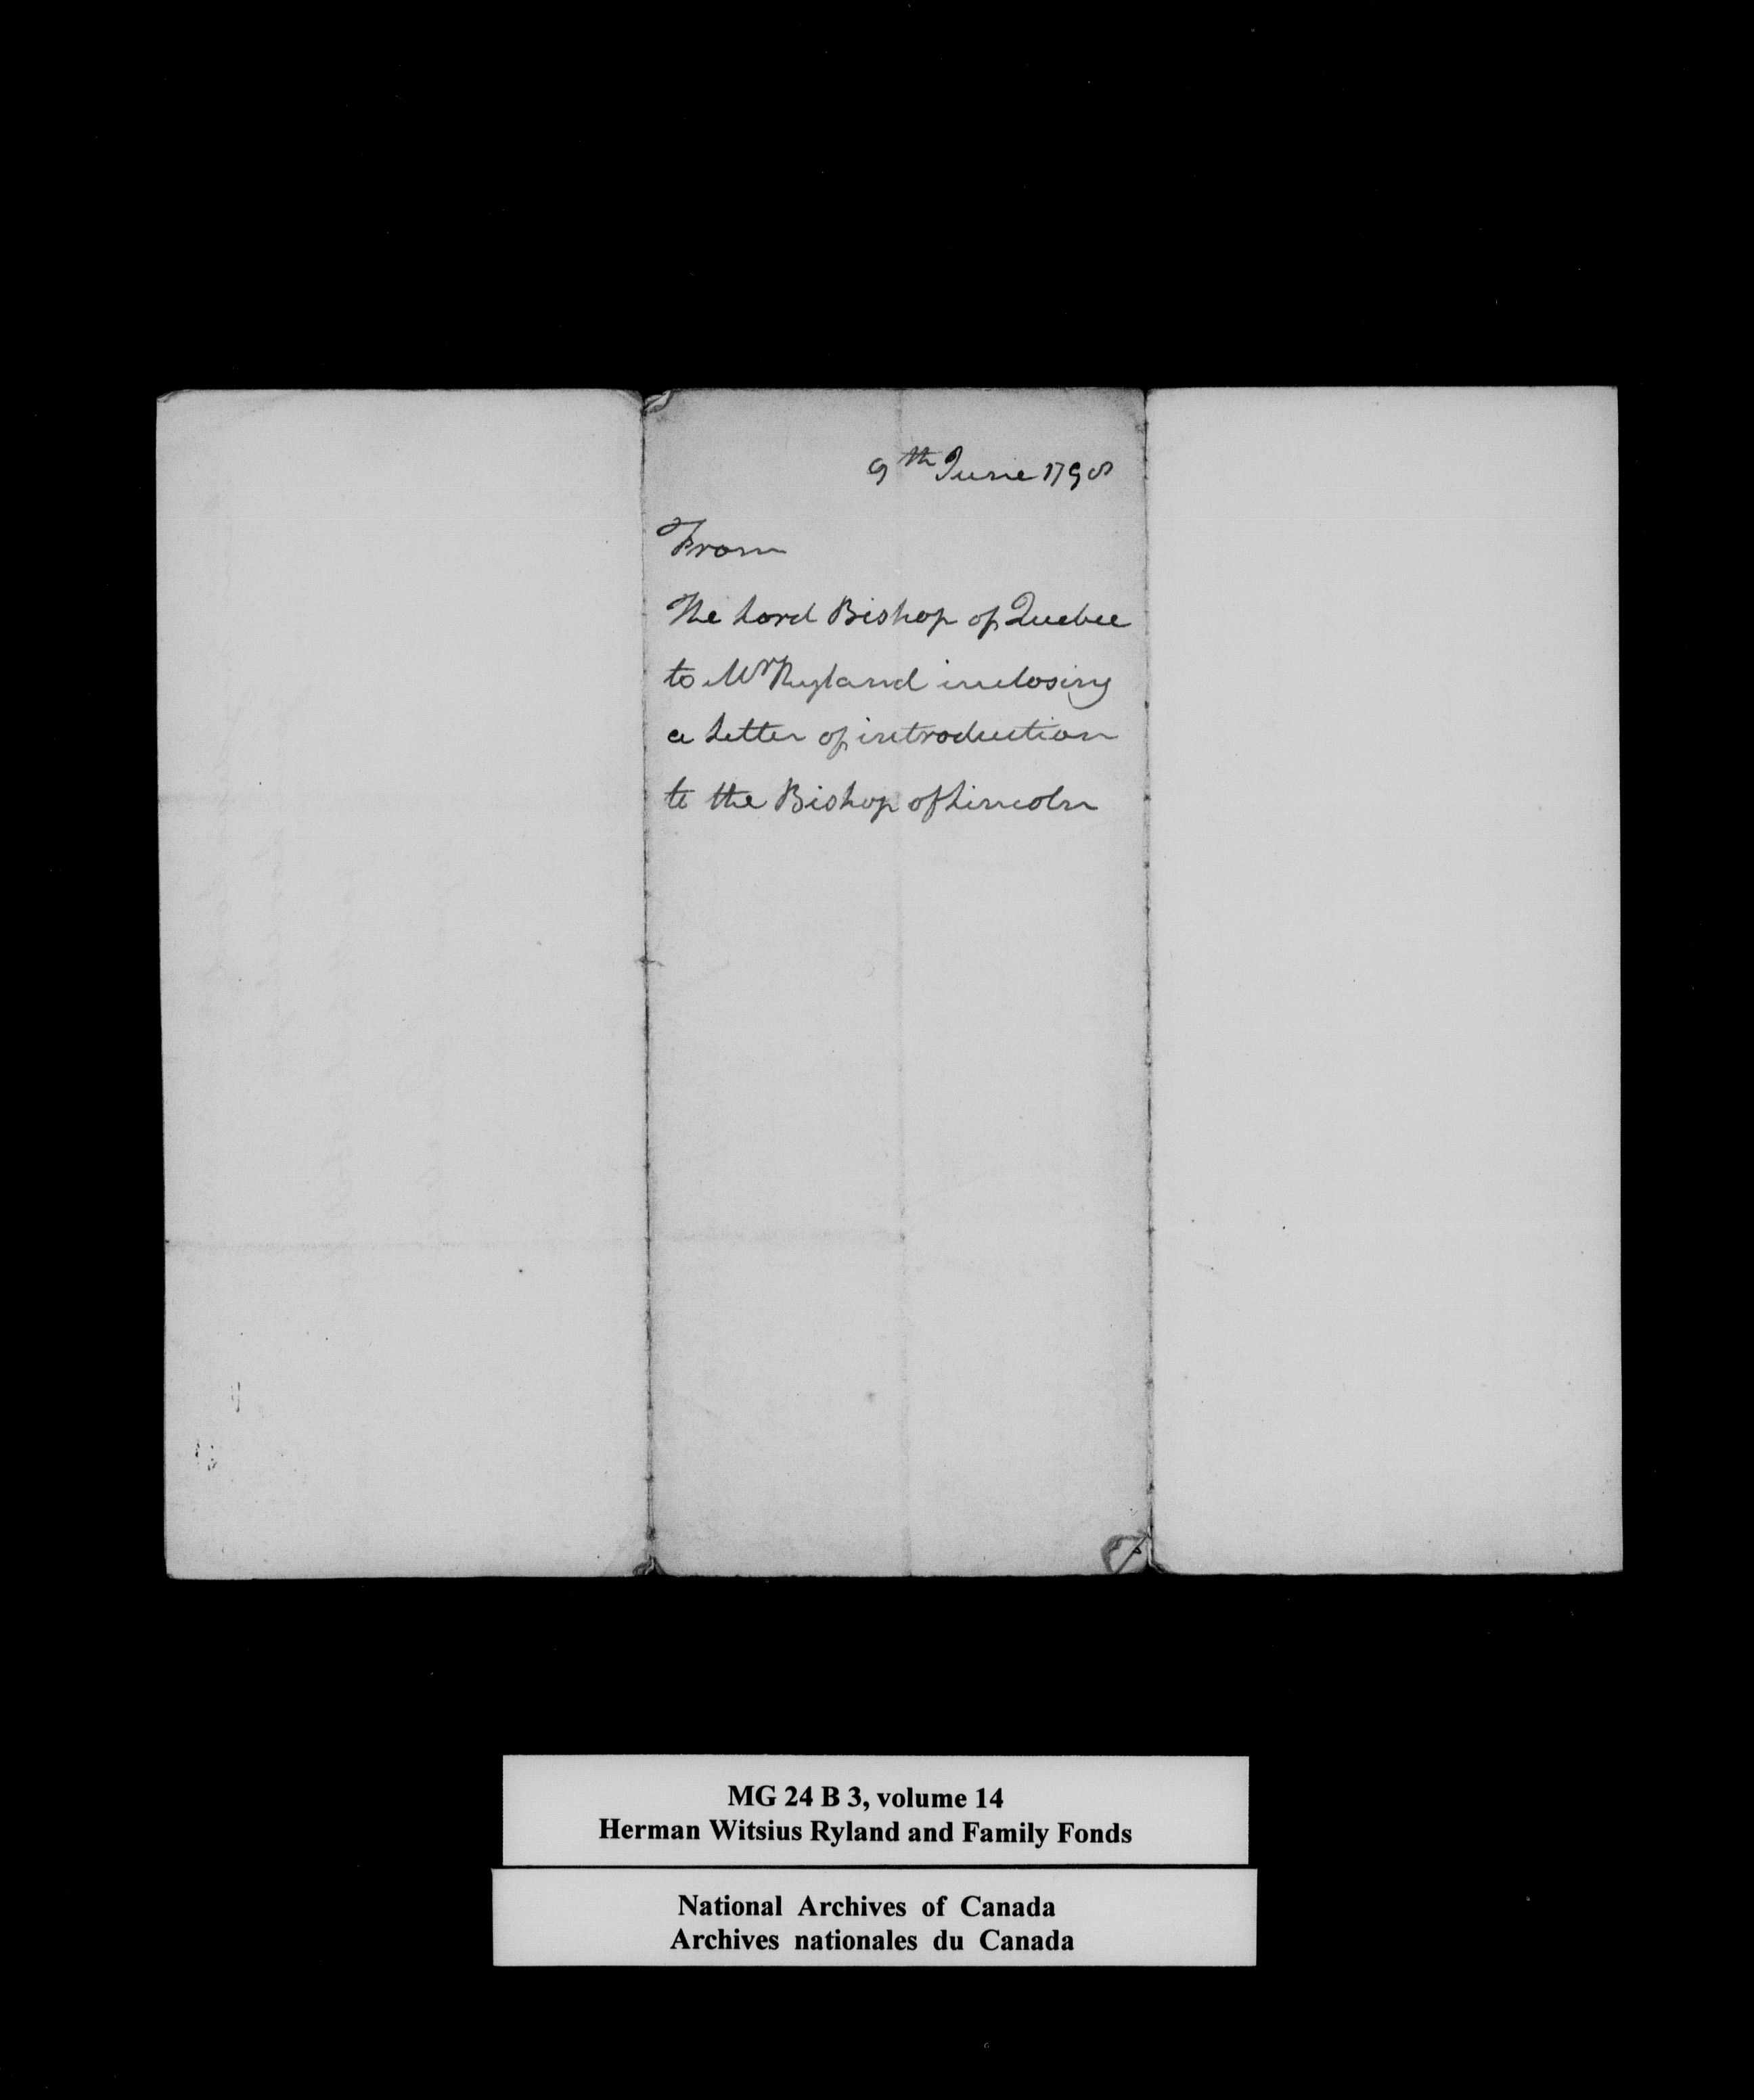 9th June 1798
From
The Lord Bishop of Quebec
to Mr Ryland inclosing
a Letter of introduction
to the Bishop of Lincoln
MG 24 B 3, volume 14
Herman Witsius Ryland and Family Fonds
National Archives of Canada
Archives nationales du Canada